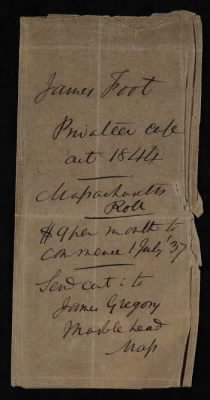 James Foot
Privateer case
act 1844
Massachusetts
Roll
$9 per month to
commence 1 July '37
Send cert: to
James Gregory
Marblehead
Mass